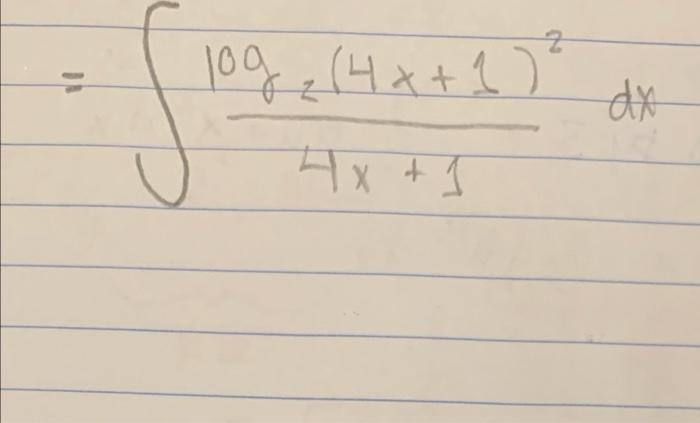 = ∫ log₂(4x+1)² / 4x+1 dx